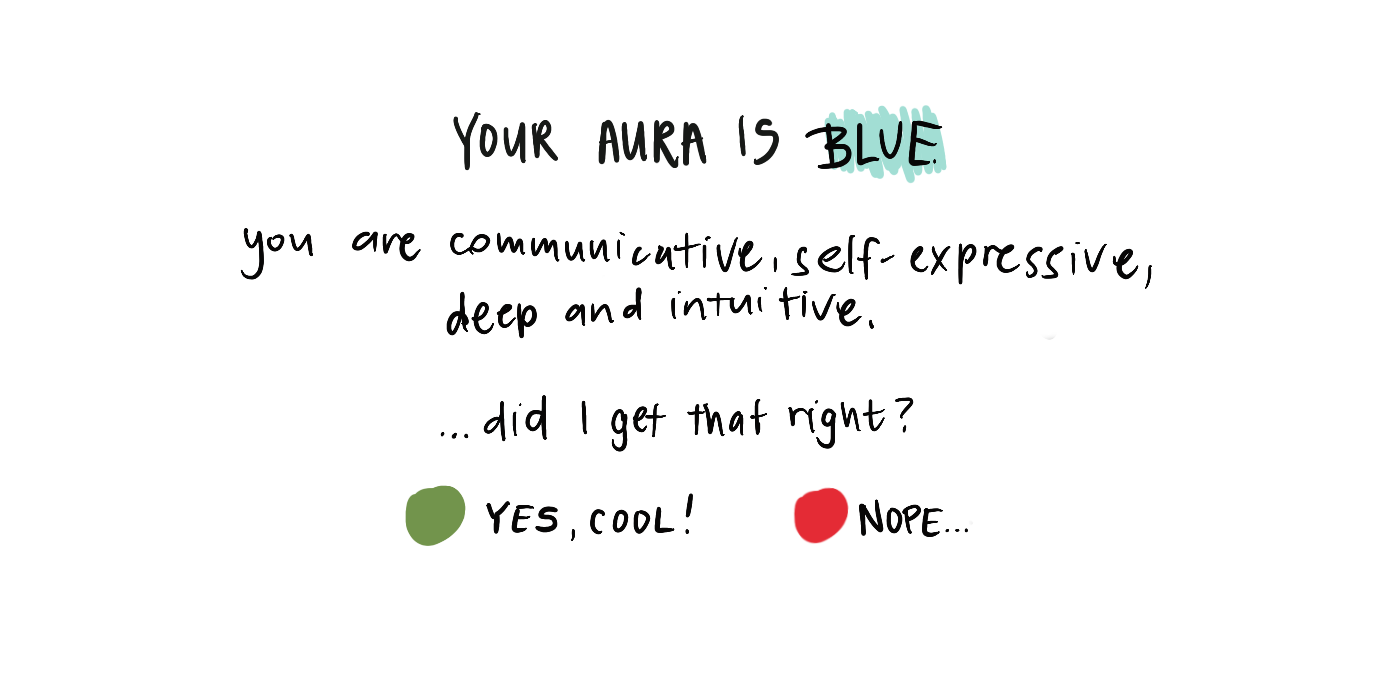 YOUR AURA IS BLUE.
you are communicative, self-expressive,
deep and intuitive.
...did I get that right?
YES, COOL! NOPE...